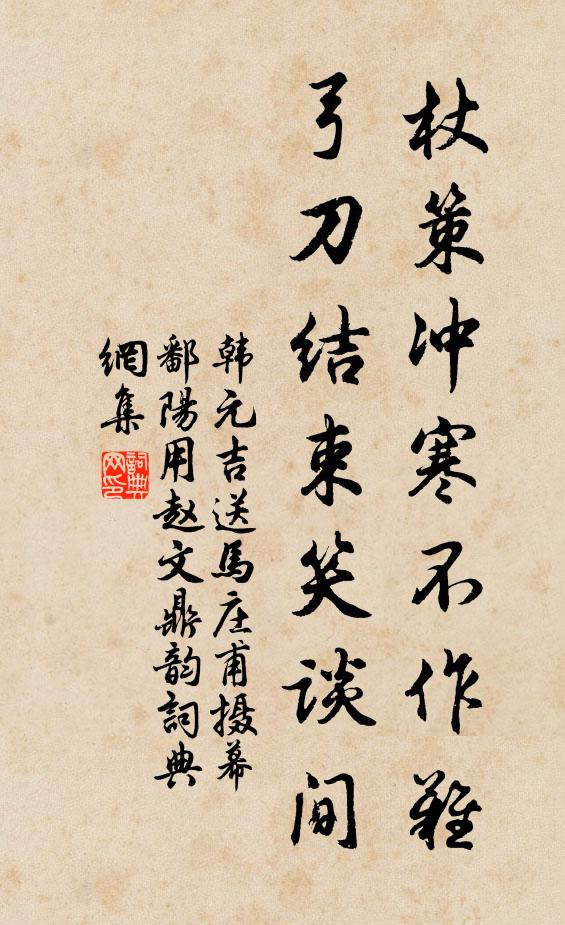 杖策冲寒不作難
弓刀结束笑谈间
韩元吉送馬庄甫摄幕
鄱陽用赵文鼎韵詞典
網集
詞典
网印